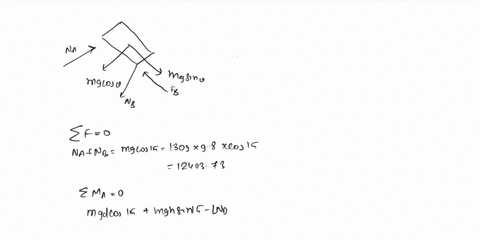 NA
mgcosθ
mgsinθ
FB
NB
∑F=0
NA+NB= mgcos15 = 130g × 9.8 × cos15
= 12403.73
∑MA=0
mgdcos15 + mghsin15 - LNB